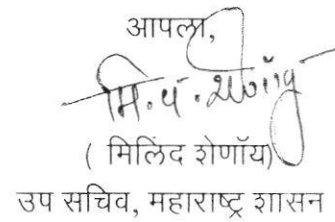 आपला,
मि. प. शेणॉय
( मिलिंद शेणॉय)
उप सचिव, महाराष्ट्र शासन